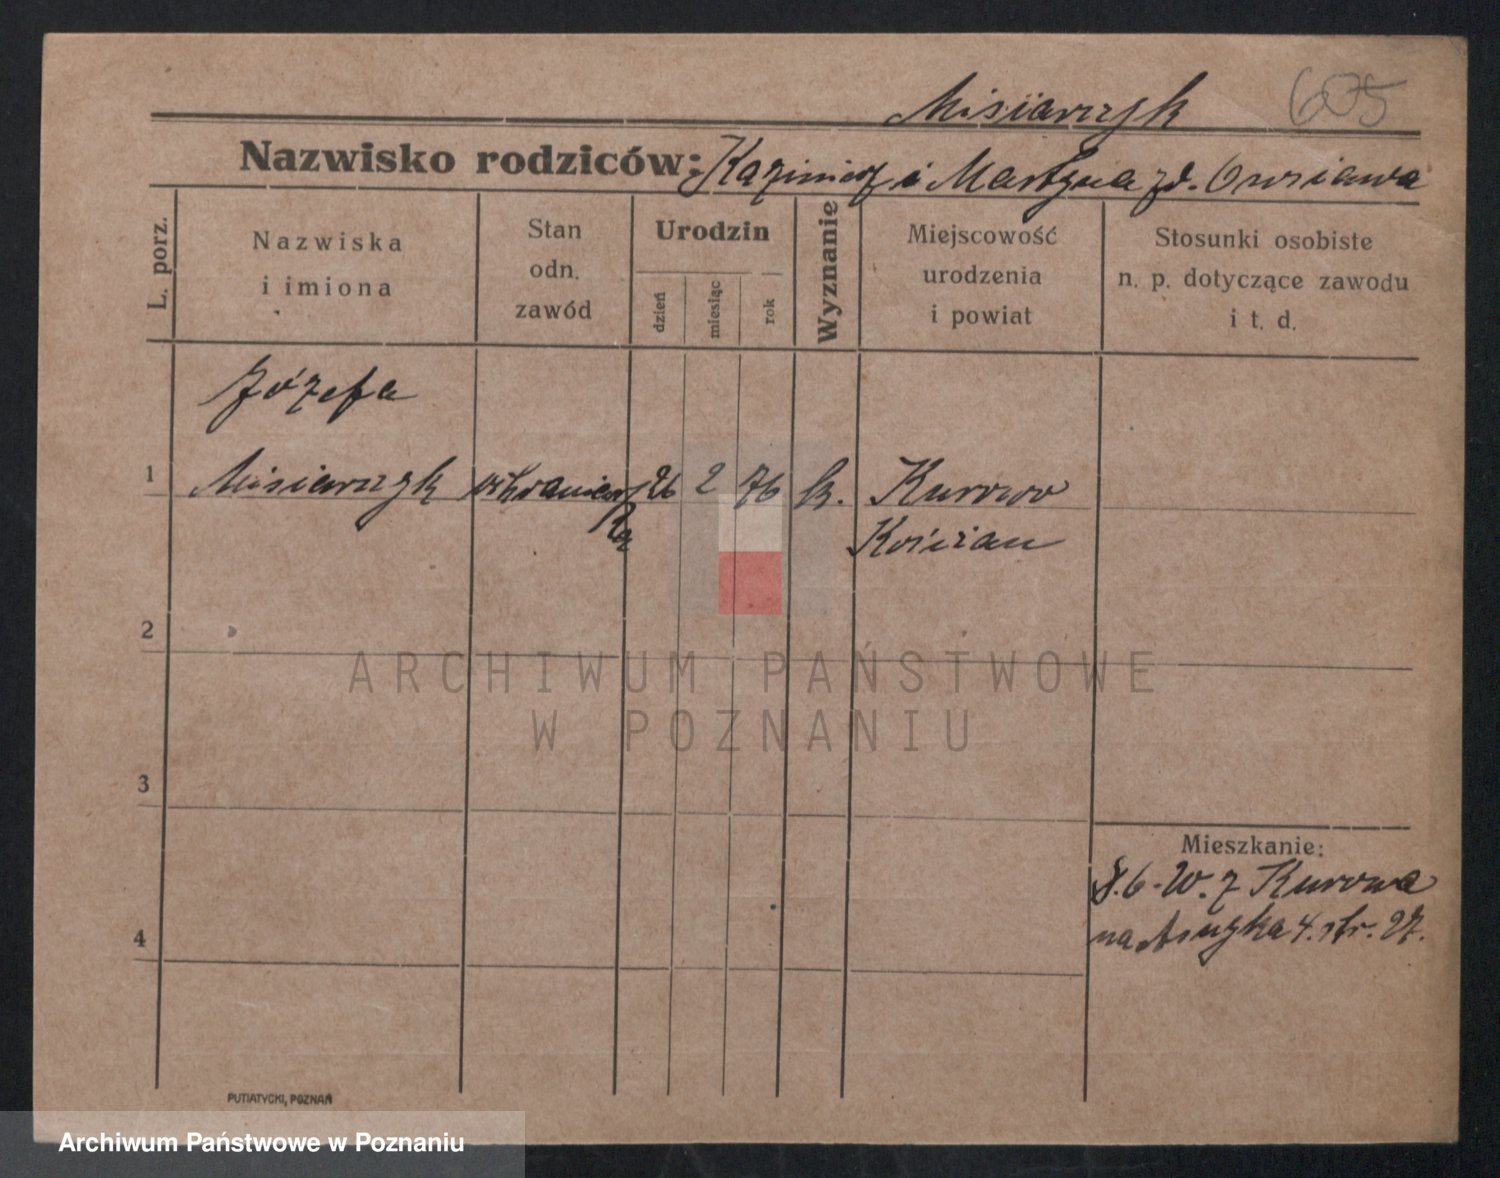 Misiarczyk 675
Nazwisko rodziców: Kazimierz i Martyna zd. Owsiana
L. porz.
Nazwiska
i imiona
Stan
odn.
zawód
Urodzin
dzień
miesiąc
rok
Wyznanie
Miejscowość
urodzenia
i powiat
Stosunki osobiste
n. p. dotyczące zawodu
i t. d.
Józefa
1 Misiarczyk 26 2 76 k. Kurowo
Kościan
2
ARCHIWUM PAŃSTWOWE
W POZNANIU
3
Mieszkanie:
8.6. W. z Kurowa
4 4. str. 27.
PUTIATYCKI, POZNAŃ
Archiwum Państwowe w Poznaniu